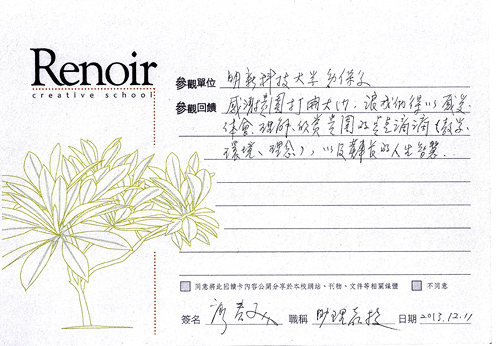 Renoir
creative school
參觀單位 明新科技大學幼保系
參觀回饋 感謝貴園打開大門，讓我們得以感受、
體會、理解、欣賞貴園的點點滴滴（教學、
環境、理念），以及華 的人生智慧．
同意將此回饋卡內容公開分享於本校網站、刊物、文件等相關媒體 不同意
簽名 廖 職稱 助理教授 日期 2013.12.11